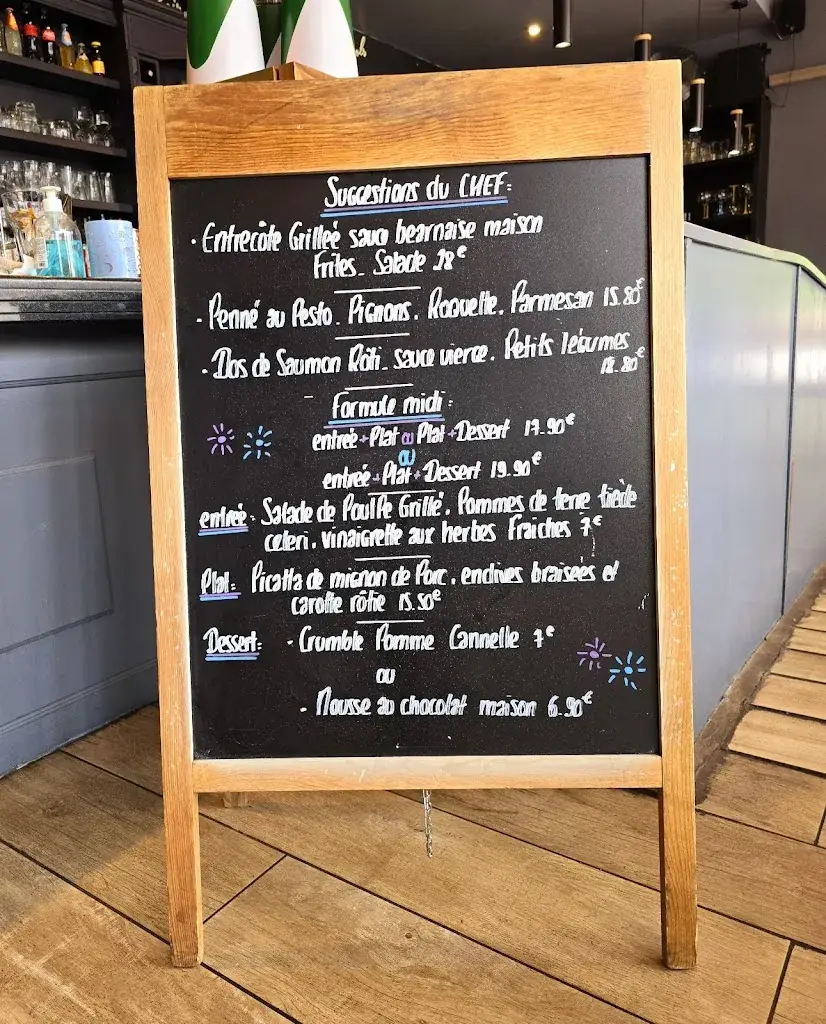 Suggestions du CHEF:
· Entrecôte Grillée sauce bearnaise maison
Frites - Salade 28€
- Penné au Pesto. Pignons. Roquette. Parmesan 15.80€
- Dos de Saumon Rôti - sauce vierge. Petits légumes
18.80€
Formule midi:
entrée + Plat ou Plat + Dessert 17.90€
ou
entrée + Plat + Dessert 19.90€
entrée: Salade de Poulpe Grillé. Pommes de terre tiède
celeri. vinaigrette aux herbes Fraiches 7€
Plat: Picatta de mignon de Porc. endives braisées et
carotte rôtie 15.50€
Dessert: - Crumble Pomme Cannelle 7€
ou
- Mousse au chocolat maison 6.90€